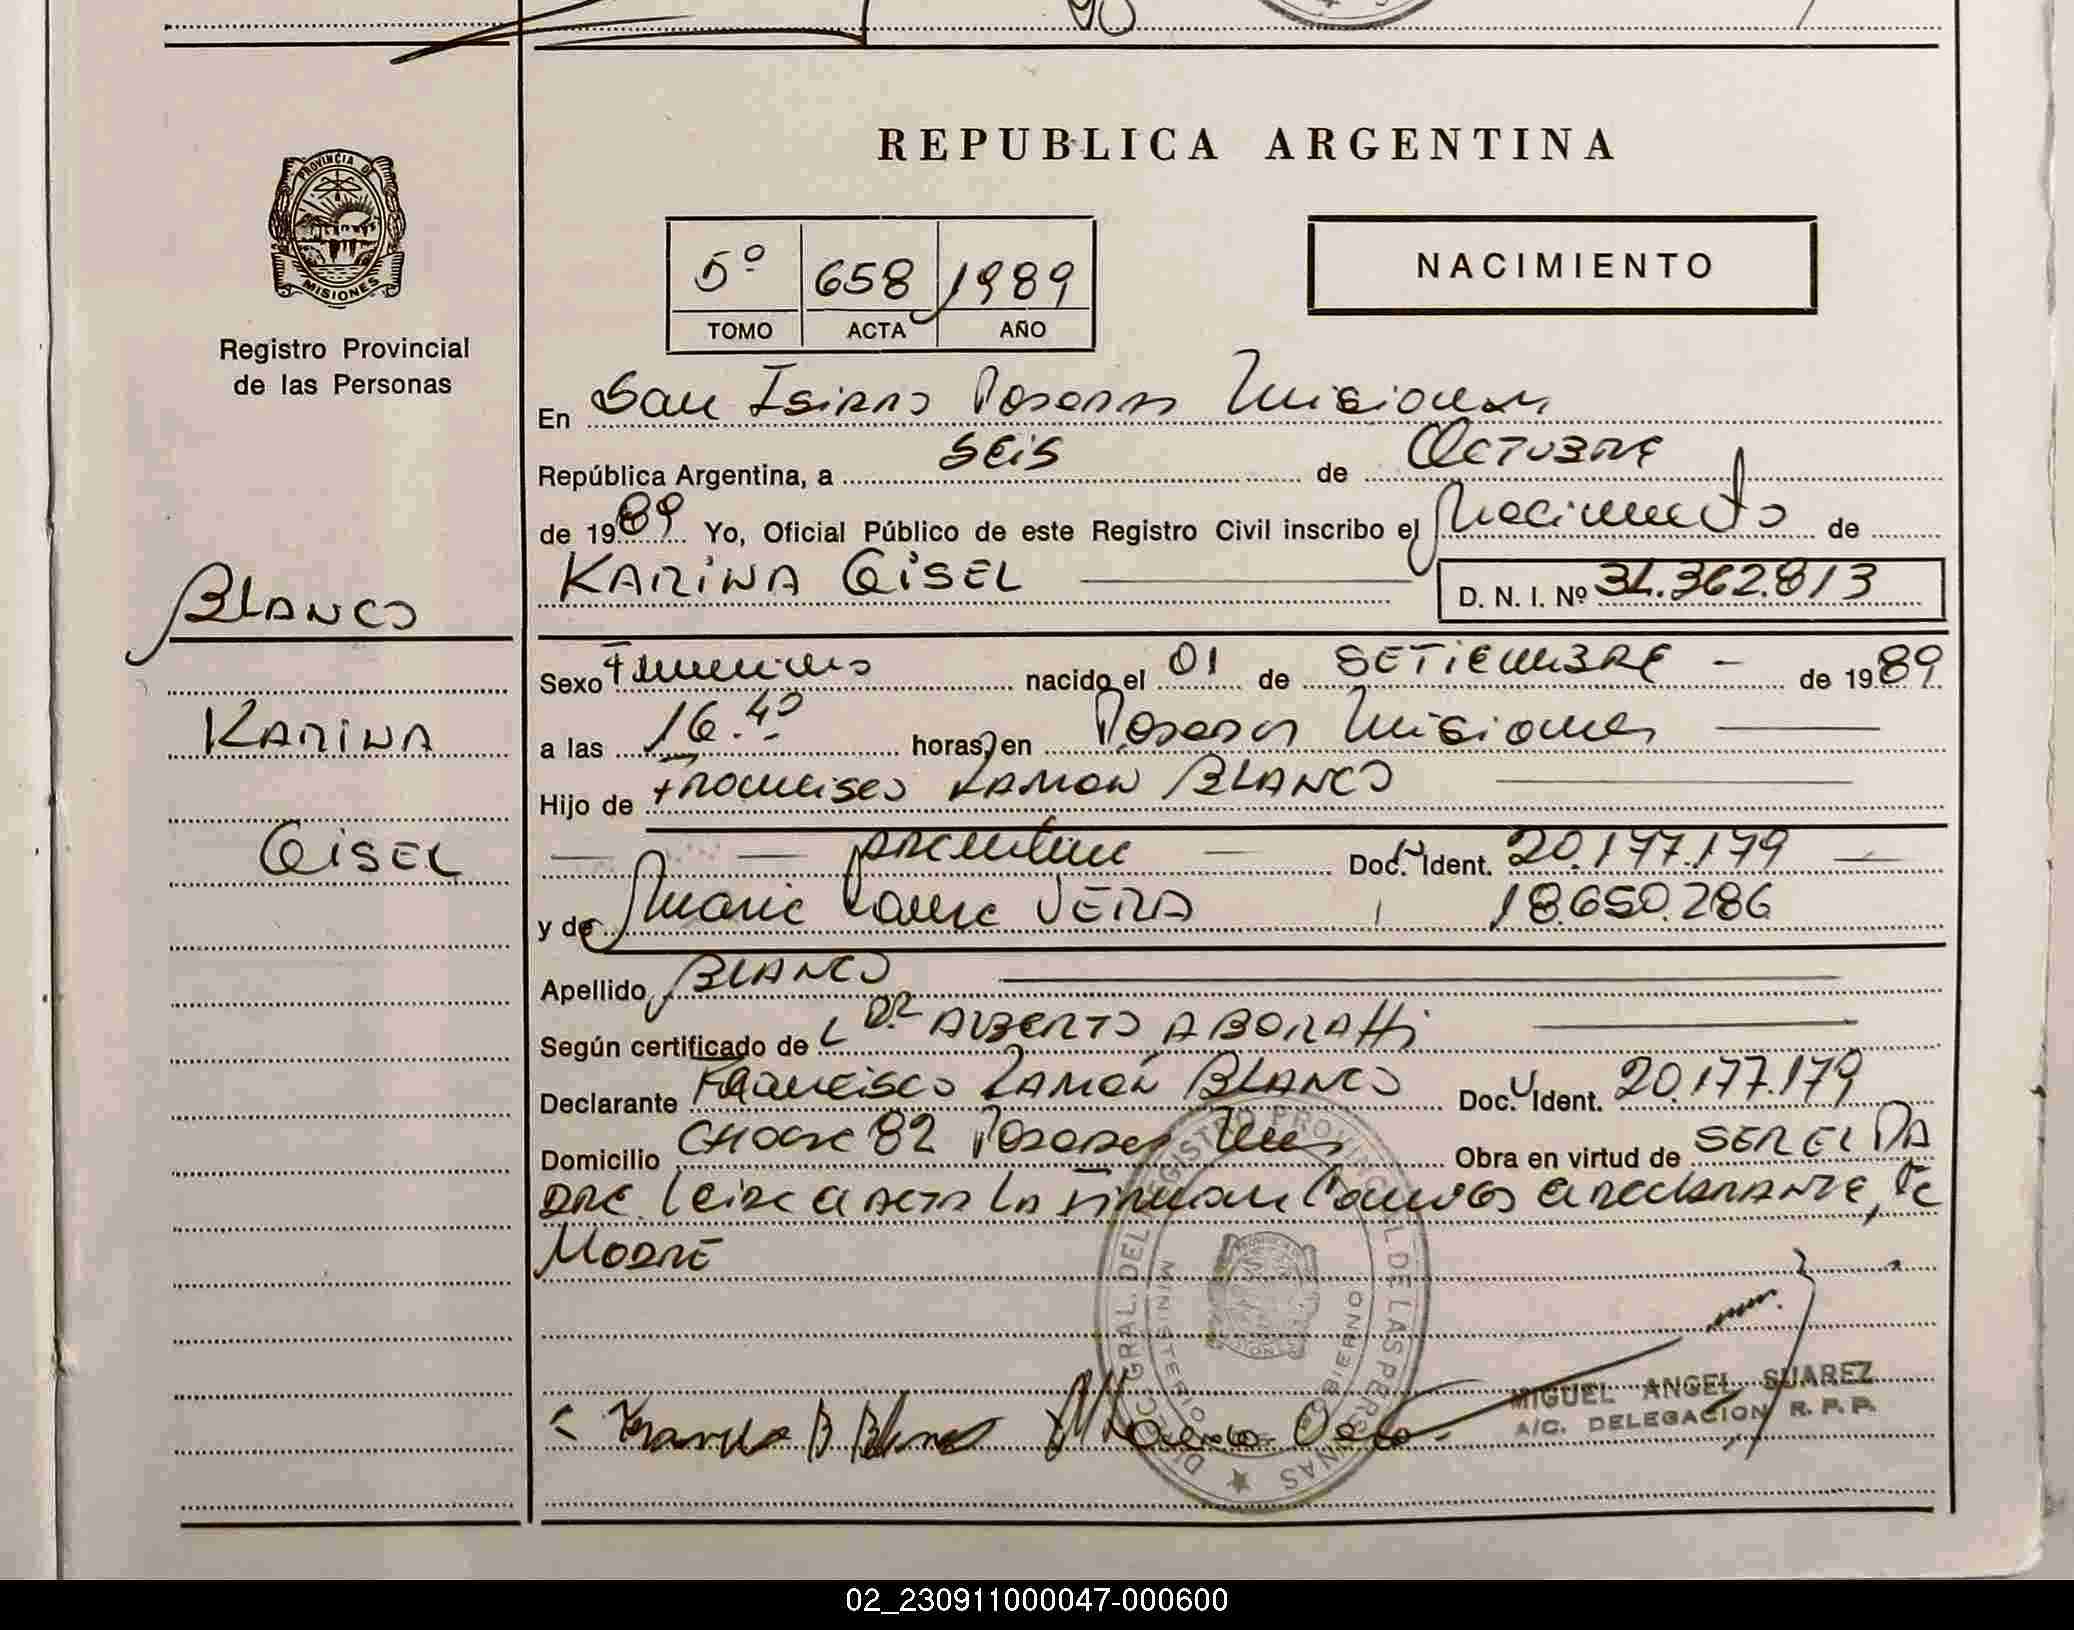 REPUBLICA ARGENTINA
PROVINCIA DE
MISIONES
Registro Provincial
de las Personas
5º 658 1989
TOMO ACTA AÑO
NACIMIENTO
En San Isidro Posadas Misiones
República Argentina, a seis de Octubre
de 1989 Yo, Oficial Público de este Registro Civil inscribo el Nacimiento de
KARINA GISEL D. N. I. Nº 34.362.813
BLANCO
KARINA
GISEL
Sexo Femenino nacido el 01 de SETIEMBRE - de 1989
a las 16.40 horas, en Posadas Misiones
Hijo de Francisco RAMON BLANCO
argentino Doc. Ident. 20.177.179
y de Maria VERA 18.650.286
Apellido BLANCO
Según certificado de Dr ALBERTO ABORATTI
Declarante Francisco RAMÓN BLANCO Doc. Ident. 20.177.179
Domicilio CHACRA 82 Posadas Mnes Obra en virtud de SER EL PA
DRE. Leida el ACTA LA Firman Conmigo el declarante, la
MADRE
DIREC. GRAL. DEL REGISTRO PROVINCIAL DE LAS PERSONAS
MINISTERIO GOBIERNO
MIGUEL ANGEL SUAREZ
A/C. DELEGACION R. P. P.
02_230911000047-000600